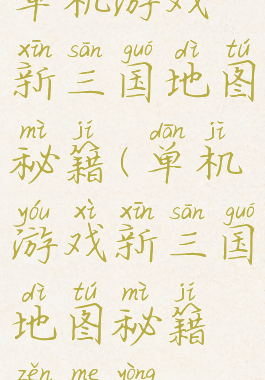 单机游戏
xīn sān guó dì tú
新三国地图
mì jí dān jī
秘籍(单机
yóu xì xīn sān guó
游戏新三国
dì tú mì jí
地图秘籍
zěn me yòng